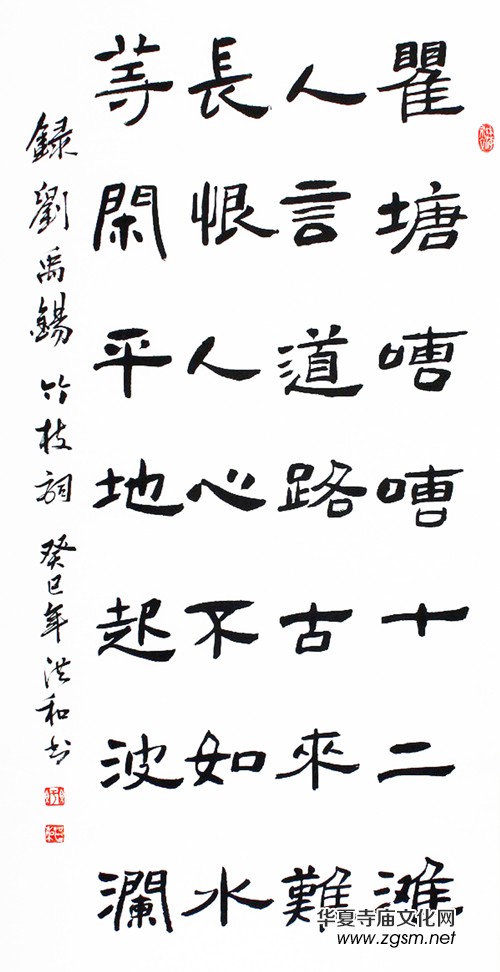 瞿塘嘈嘈十二滩
人言道路古來難
長恨人心不如水
等閑平地起波瀾
録劉禹錫竹枝詞 癸巳年洪和书
华夏寺庙文化网
www.zgsm.net